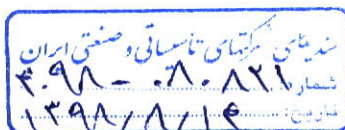 سندیکای شرکتهای تاسیساتی و صنعتی ایران
شماره: ۴۰۹۸-۰۸۰۸۲۱
تاریخ: ۱۳۹۸/۸/۱۴